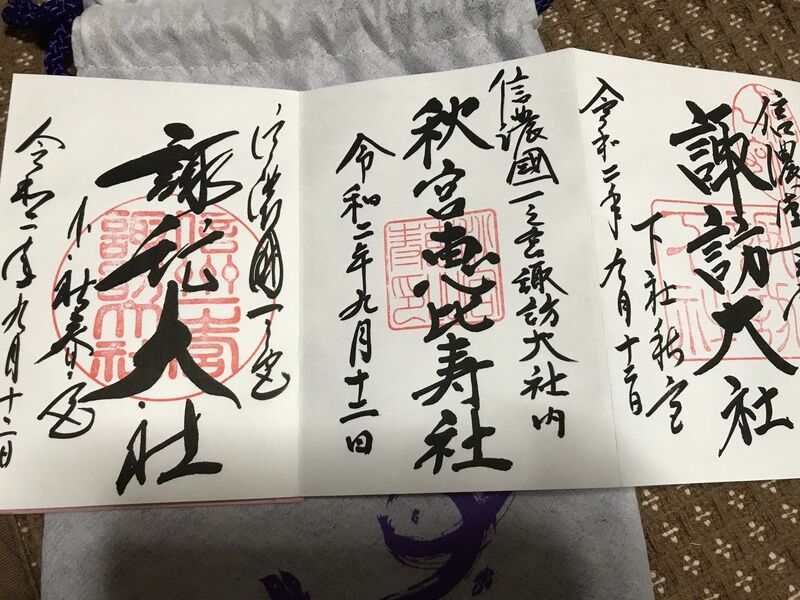 信濃國一之宮
諏訪大社
下社秋宮
令和二年九月十二日
信濃國一之宮諏訪大社内
秋宮恵比寿社
令和二年九月十二日
信濃國一之宮
諏訪大社
下社春宮
令和二年九月十二日